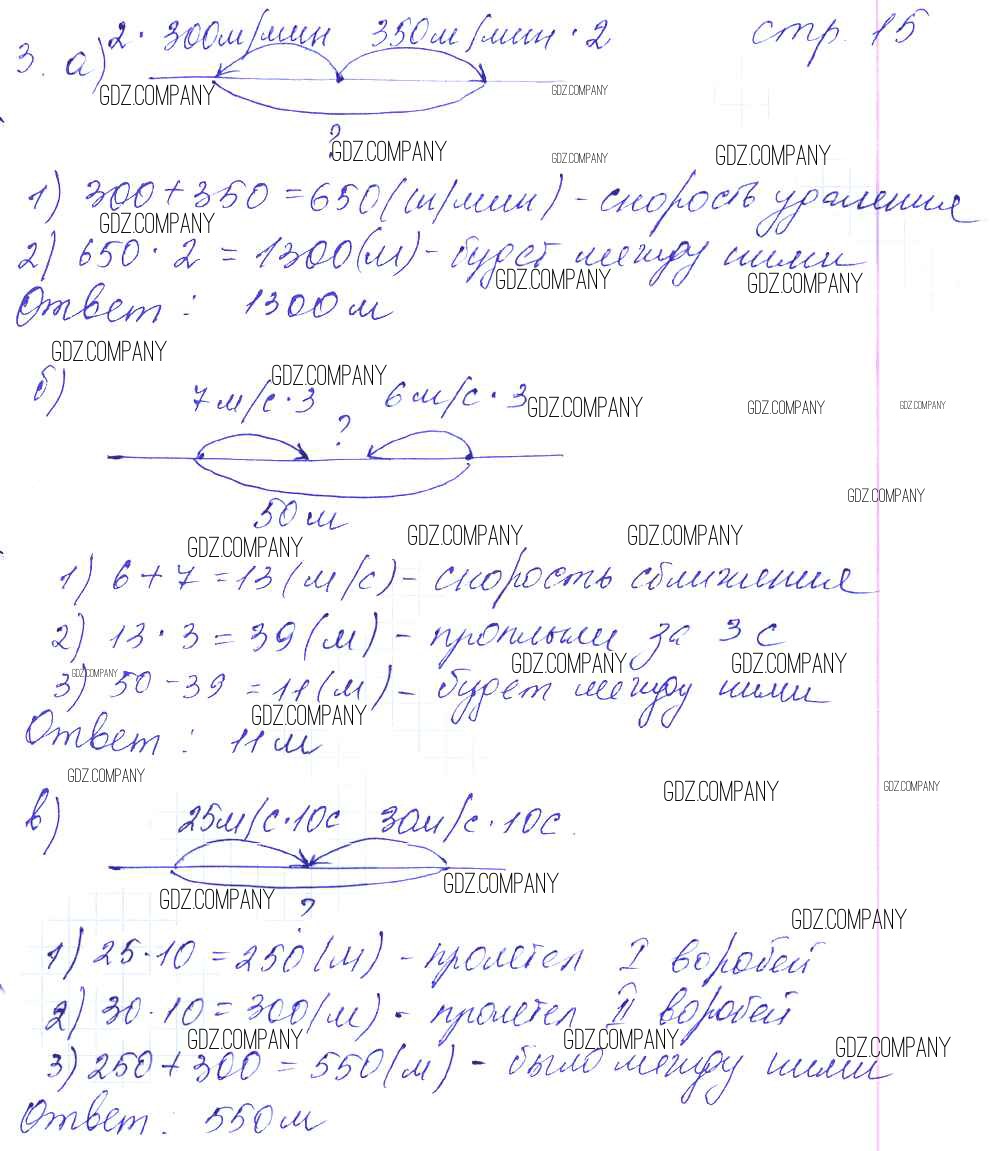 стр. 15
3. а) 2 · 300м/мин 350м/мин · 2
GDZ.COMPANY GDZ.COMPANY
?
GDZ.COMPANY GDZ.COMPANY GDZ.COMPANY
1) 300 + 350 = 650 (м/мин) - скорость удаления
GDZ.COMPANY
2) 650 · 2 = 1300 (м) - будет между ними
GDZ.COMPANY GDZ.COMPANY
Ответ : 1300 м
GDZ.COMPANY
б) 7 м/с · 3 6 м/с · 3
GDZ.COMPANY GDZ.COMPANY GDZ.COMPANY GDZ.COMPANY
?
50 м
GDZ.COMPANY
GDZ.COMPANY GDZ.COMPANY GDZ.COMPANY
1) 6 + 7 = 13 (м/с) - скорость сближения
2) 13 · 3 = 39 (м) - проплыли за 3 с
GDZ.COMPANY GDZ.COMPANY GDZ.COMPANY
3) 50 - 39 = 11 (м) - будет между ними
GDZ.COMPANY
Ответ : 11 м
GDZ.COMPANY GDZ.COMPANY GDZ.COMPANY
в) 25м/с · 10с 30м/с · 10с.
GDZ.COMPANY GDZ.COMPANY
?
GDZ.COMPANY
1) 25 · 10 = 250 (м) - пролетел I воробей
2) 30 · 10 = 300 (м) - пролетел II воробей
GDZ.COMPANY GDZ.COMPANY GDZ.COMPANY
3) 250 + 300 = 550 (м) - было между ними
Ответ : 550 м